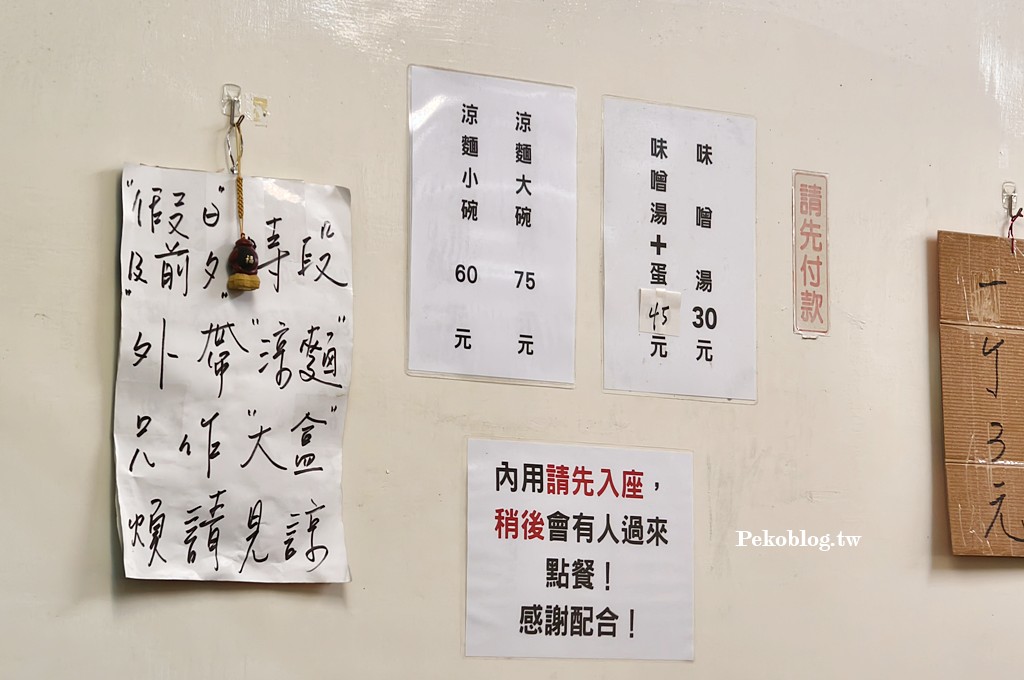 "假日"
及"前夕"時段
外帶"涼麵"
只作"大盒"
煩請見諒
涼麵大碗 75 元
涼麵小碗 60 元
味噌湯30元
味噌湯+蛋45元
請先付款
內用請先入座，
稍後會有人過來
點餐！
感謝配合！
一ケ3元
Pekoblog.tw